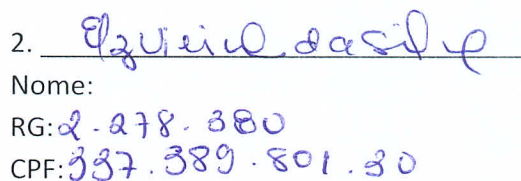 2. Elzvieira da Silva
Nome:
RG: 2.278.380
CPF: 337.389.801.30